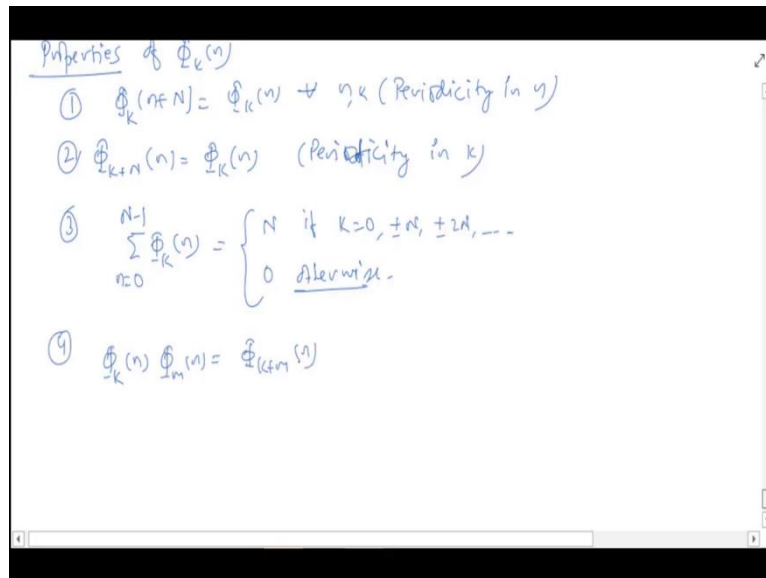 Properties of Φ_k(n)
① Φ_k(n+N) = Φ_k(n) ∀ n,k (Periodicity in n)
② Φ_{k+N}(n) = Φ_k(n) (Periodicity in k)
③ \sum_{n=0}^{N-1} Φ_k(n) = { N if k=0, ±N, ±2N, ---
0 otherwise.
④ Φ_k(n) Φ_m(n) = Φ_{k+m}(n)